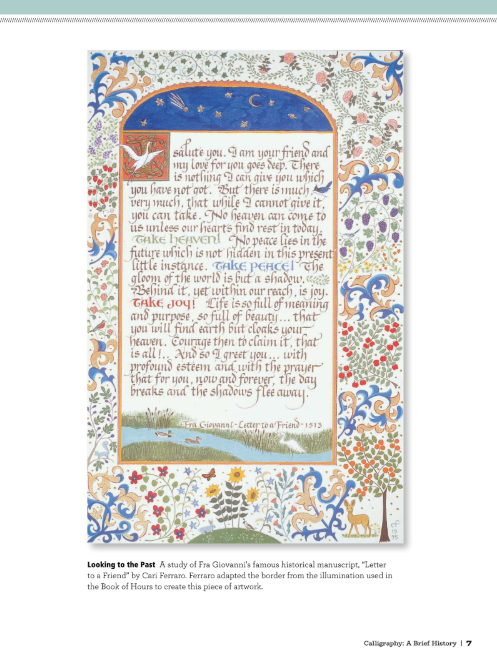 I salute you. I am your friend and
my love for you goes deep. There
is nothing I can give you which
you have not got. But there is much,
very much, that while I cannot give it,
you can take. No heaven can come to
us unless our hearts find rest in today.
TAKE HEAVEN! No peace lies in the
future which is not hidden in this present
little instance. TAKE PEACE! The
gloom of the world is but a shadow.
Behind it, yet within our reach, is joy.
TAKE JOY! Life is so full of meaning
and purpose, so full of beauty... that
you will find earth but cloaks your
heaven. Courage then to claim it, that
is all!.. And so I greet you... with
profound esteem and with the prayer
that for you, now and forever, the day
breaks and the shadows flee away.
Fra Giovanni - Letter to a Friend - 1513
Looking to the Past A study of Fra Giovanni's famous historical manuscript, "Letter
to a Friend" by Cari Ferraro. Ferraro adapted the border from the illumination used in
the Book of Hours to create this piece of artwork.
Calligraphy: A Brief History | 7